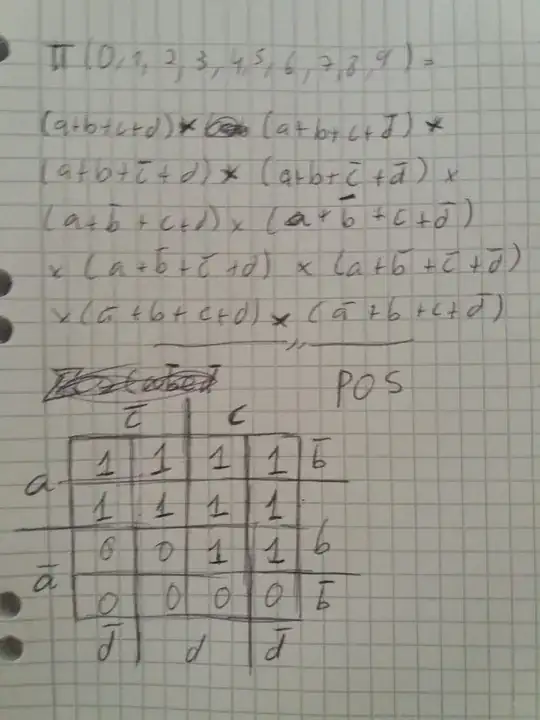 Π(0,1,2,3,4,5,6,7,8,9)=
(a+b+c+d)* (a+b+c+d̄)*
(a+b+c̄+d)* (a+b+c̄+d̄)×
(a+b̄+c+d)×(a+b̄+c+d̄)
×(a+b̄+c̄+d)×(a+b̄+c̄+d̄)
×(ā+b+c+d)*(ā+b+c+d̄)
POS
c̄ c
1 1 1 1 b̄
a
1 1 1 1
0 0 1 1 b
ā
0 0 0 0 b̄
d̄ d d̄